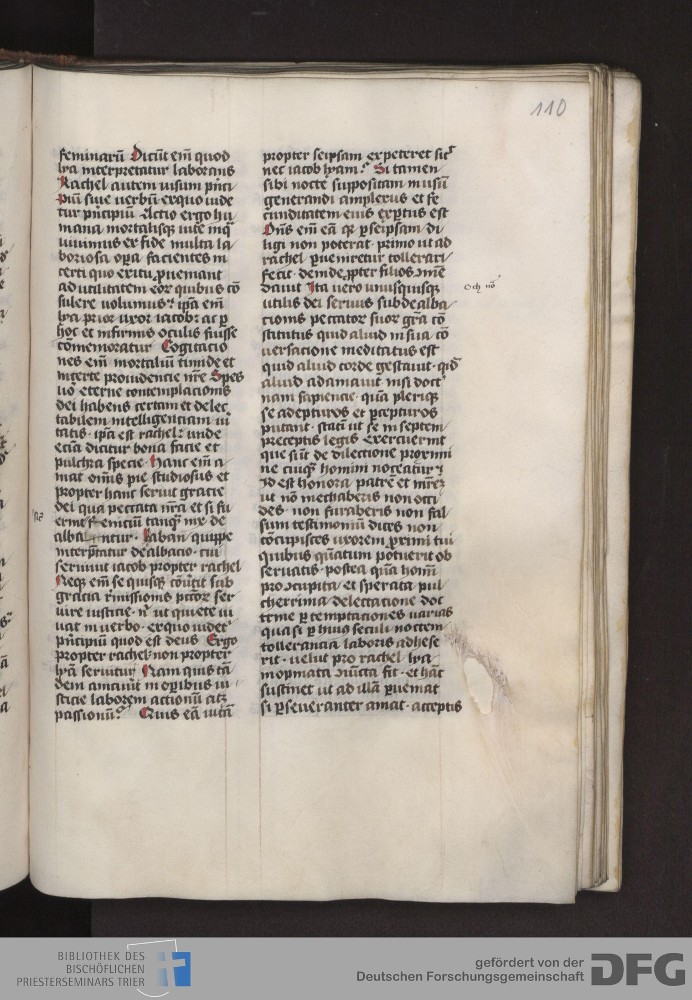 110
feminarū Dicūt em̄ quod
lya interpretatur laborans
Rachel autem uisum pn̄ci
piū siue uerbū ex quo uide
tur pn̄cipiū Actio ergo hu
mana mortalisqꝫ uite in qͣ
uiuimus ex fide multa la
boriosa oꝑa facientes in
certi quo exitu ꝓueniant
ad utilitatem eoꝝ quibus cō
sulere uolumus ip̄a em̄
lya prior uxor iacob ac ꝑ
hoc et infirmis oculis fuisse
cōmemoratur Cogitacio
nes em̄ mortaliū timide et
incerte prouidencie nr̄e Spes
uō eterne contemplacionis
dei habens certam et delec
tabilem intelligenciam ui
tatis ip̄a est rachel unde
eciā dicitur bona facie et
pulchra specie Hanc em̄ a
mat om̄is pie studiosus et
propter hanc seruit gracie
dei qua peccata nr̄a et si fu
erint fenicium tanqͣ nix de
albantur Laban quippe
interp̄tatur dealbacio cui
seruiuit iacob propter rachel
Neqꝫ em̄ se quisqꝫ cōuertit sub
gracia remissionis peccatoꝝ ser
uire iusticie nͥ ut quiete ui
uat in uerbo ex quo uidetͬ
pn̄cipiū quod est deus Ergo
propter rachel non propter
lyā seruitur Nam quis tā
dem amauit in oꝑibus iu
sticie laborem actionū atqꝫ
passionū Quis eā uitā
propter seipsam expeteret sicͭ
nec iacob lyam Si tamen
sibi nocte suppositam in usū
generandi amplexus et fe
cunditatem eius exꝑtus est
Dn̄s em̄ eā qꝛ ꝑ seipsam di
ligi non poterat primo ut ad
rachel ꝑueniretur tollerari
fecit deinde ꝓpter filios ꝯmē
dauit Ita uero unusquisqꝫ
utilis dei seruus sub dealba
cionis peccatoꝝ suoꝝ grā cō
stitutus quid aliud in sua cō
uersatione meditatus est
quid aliud corde gestauit qͥd
aliud adamauit nisi doct
nam sapiencie quā pleriqꝫ
se adepturos et ꝑcepturos
putant statī ut se in septem
preceptis legis exercuerint
que sūt de dilectione proximi
ne cuiqꝫ homini noceatur
Id est honora patrē et mr̄eꝫ
ut nō mechaberis non occi
des non furaberis non fal
sum testimoniū dices non
cōcupisces uxorem ꝓximi tui
quibus quātum potuerit ob
seruatis postea quā homī
pro ꝯcupita et sperata pul
cherrima delectatione doc
trine ꝑ temptationes uarias
quasi ꝑ huius seculi noctem
tollerancia laboris adhese
rit uelut pro rachel lya
inopinata iūcta sit et hāc
sustinet ut ad illā ꝑueniat
si ꝑseueranter amat acceptis
BIBLIOTHEK DES
BISCHÖFLICHEN
PRIESTERSEMINARS TRIER
gefördert von der
Deutschen Forschungsgemeinschaft
DFG